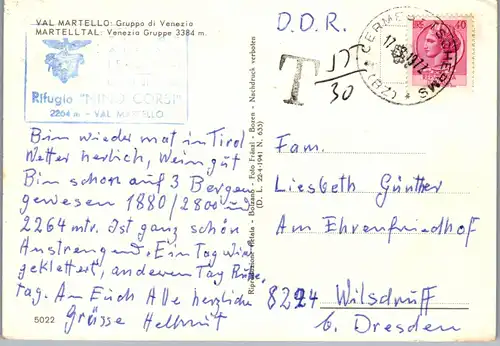 VAL MARTELLO: Gruppo di Venezia
MARTELLTAL: Venezia Gruppe 3384 m.
Rifugio "NINO CORSI"
2264 m - VAL MARTELLO
D.D.R.
T
30
CERMES TSCHERMS
(BZ)
40
Bin wieder mat in Tirol
Wetter herlich, Wein gut
Bin schon auf 3 Bergen
gewesen 1880/2800 und
2264 mtr. Ist ganz schön
Anstrengend. Ein Tag wird
geklettert, anderen Tag Ruhe,
tag. Am Euch Alle herzliche
Grüsse Hellmut
5022
Riproduzione vietata - Bolzano - Foto Fränzl - Bozen - Nachdruck verboten
(D. L. 22-4-1941 N. 633)
Fam.
Liesbeth Günther
Am Ehrenfriedhof
8224 Wilsdruff
b. Dresden